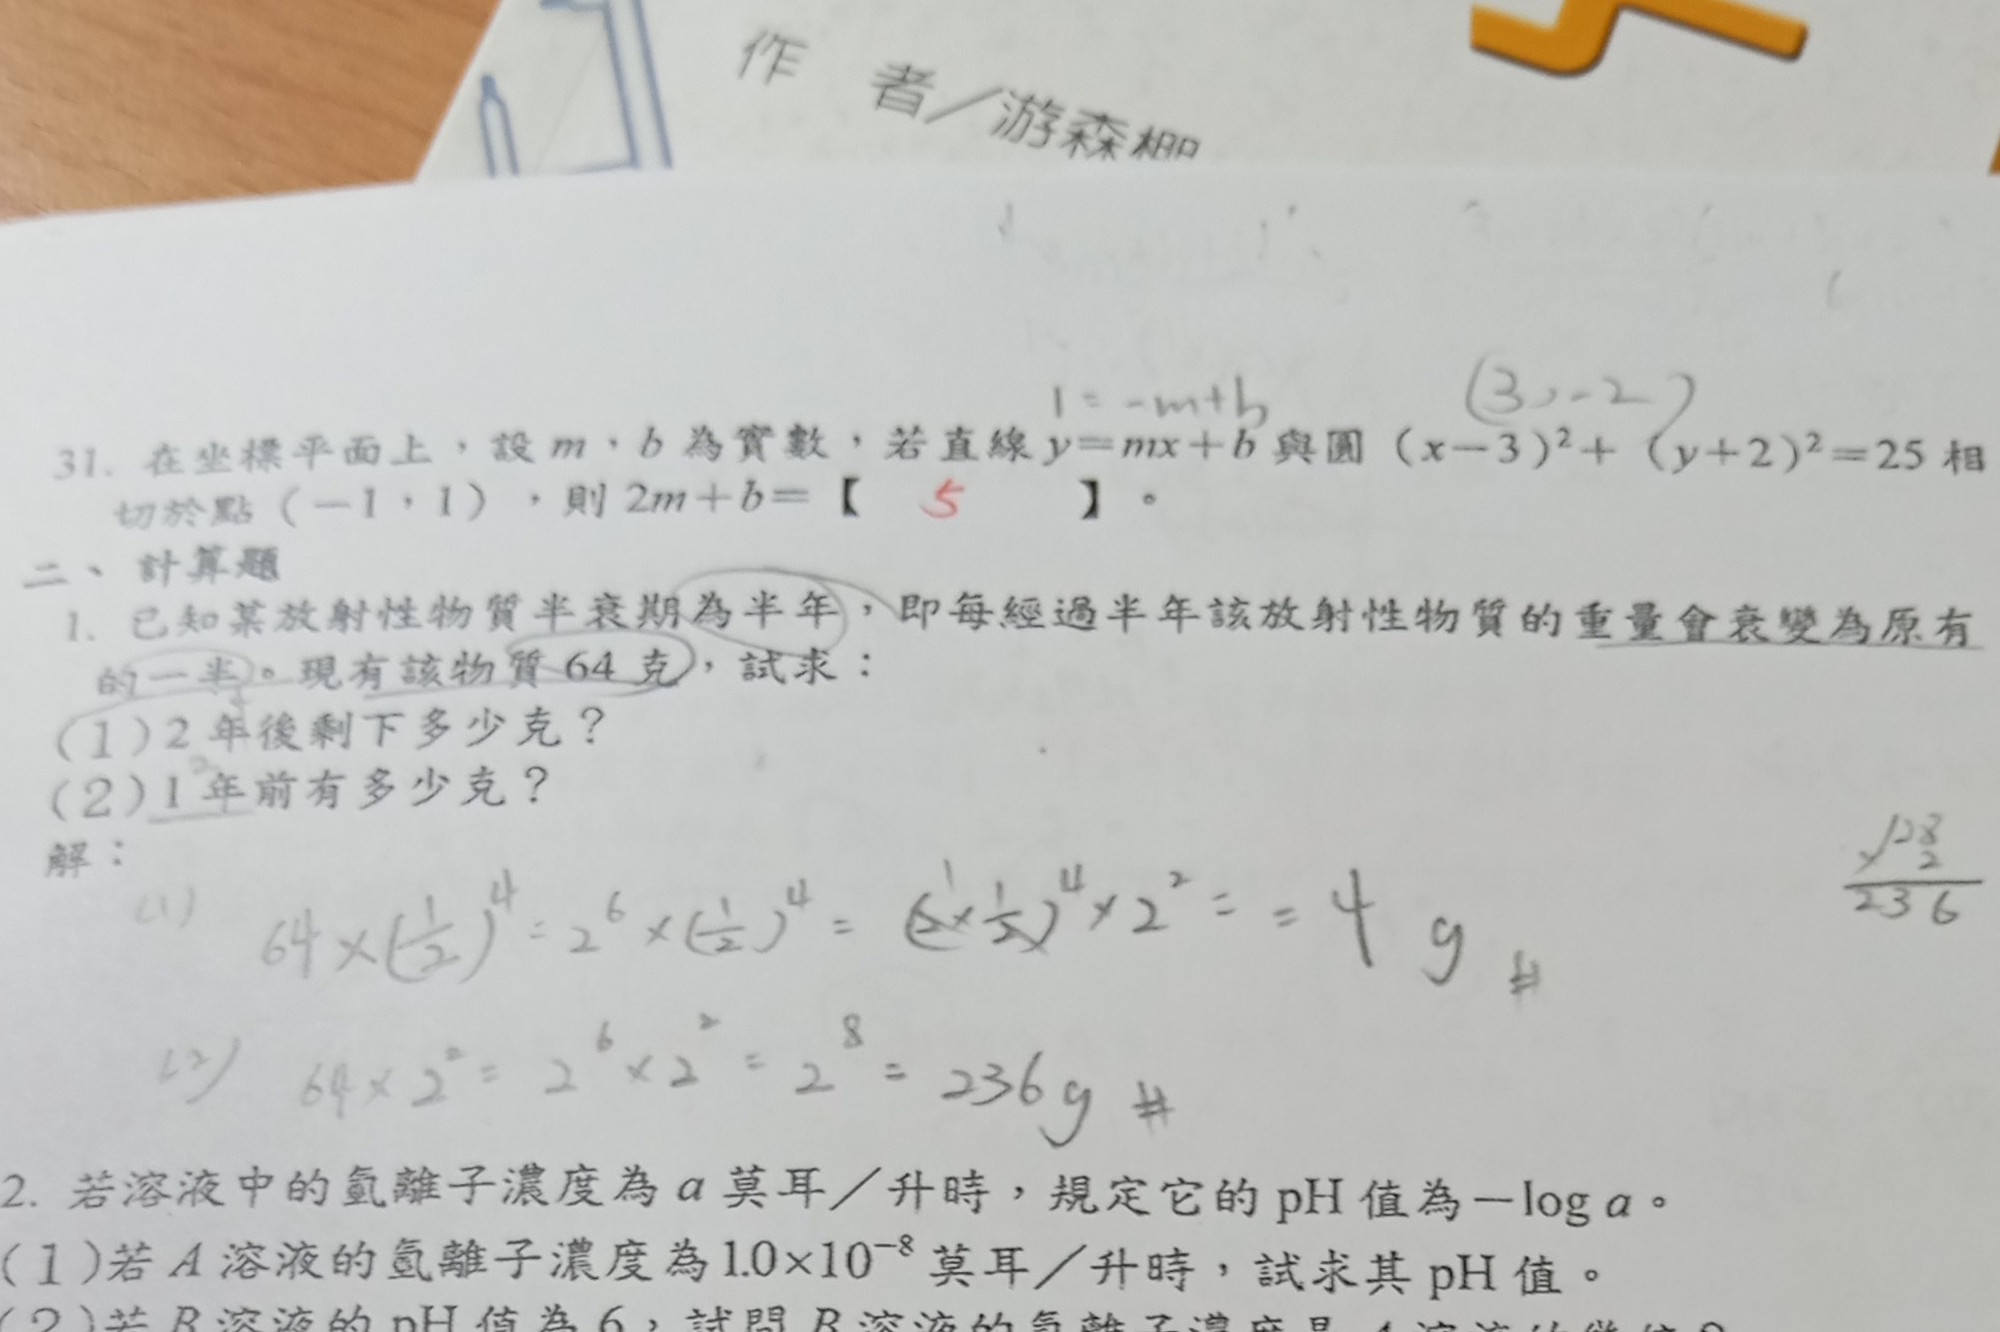 作 者／游森棚
1 = -m+b
(3, -2)
31. 在坐標平面上，設 m、b 為實數，若直線 y=mx+b 與圓 (x-3)²+(y+2)²=25 相
切於點 (-1，1)，則 2m+b=【 5 】。
二、計算題
1. 已知某放射性物質半衰期為半年，即每經過半年該放射性物質的重量會衰變為原有
的一半。現有該物質 64 克，試求：
(1) 2 年後剩下多少克？
(2) 1 年前有多少克？
解：
128
× 2
236
(1) 64×(1/2)⁴ = 2⁶×(1/2)⁴ = (2×1/2)⁴×2² = = 4 g #
(2) 64×2² = 2⁶×2² = 2⁸ = 236 g #
2. 若溶液中的氫離子濃度為 a 莫耳／升時，規定它的 pH 值為－log a。
(1) 若 A 溶液的氫離子濃度為 1.0×10⁻⁸ 莫耳／升時，試求其 pH 值。
(2) 若 B 溶液的 pH 值為 6，試問 B 溶液的氫離子濃度是 A 溶液的幾倍？